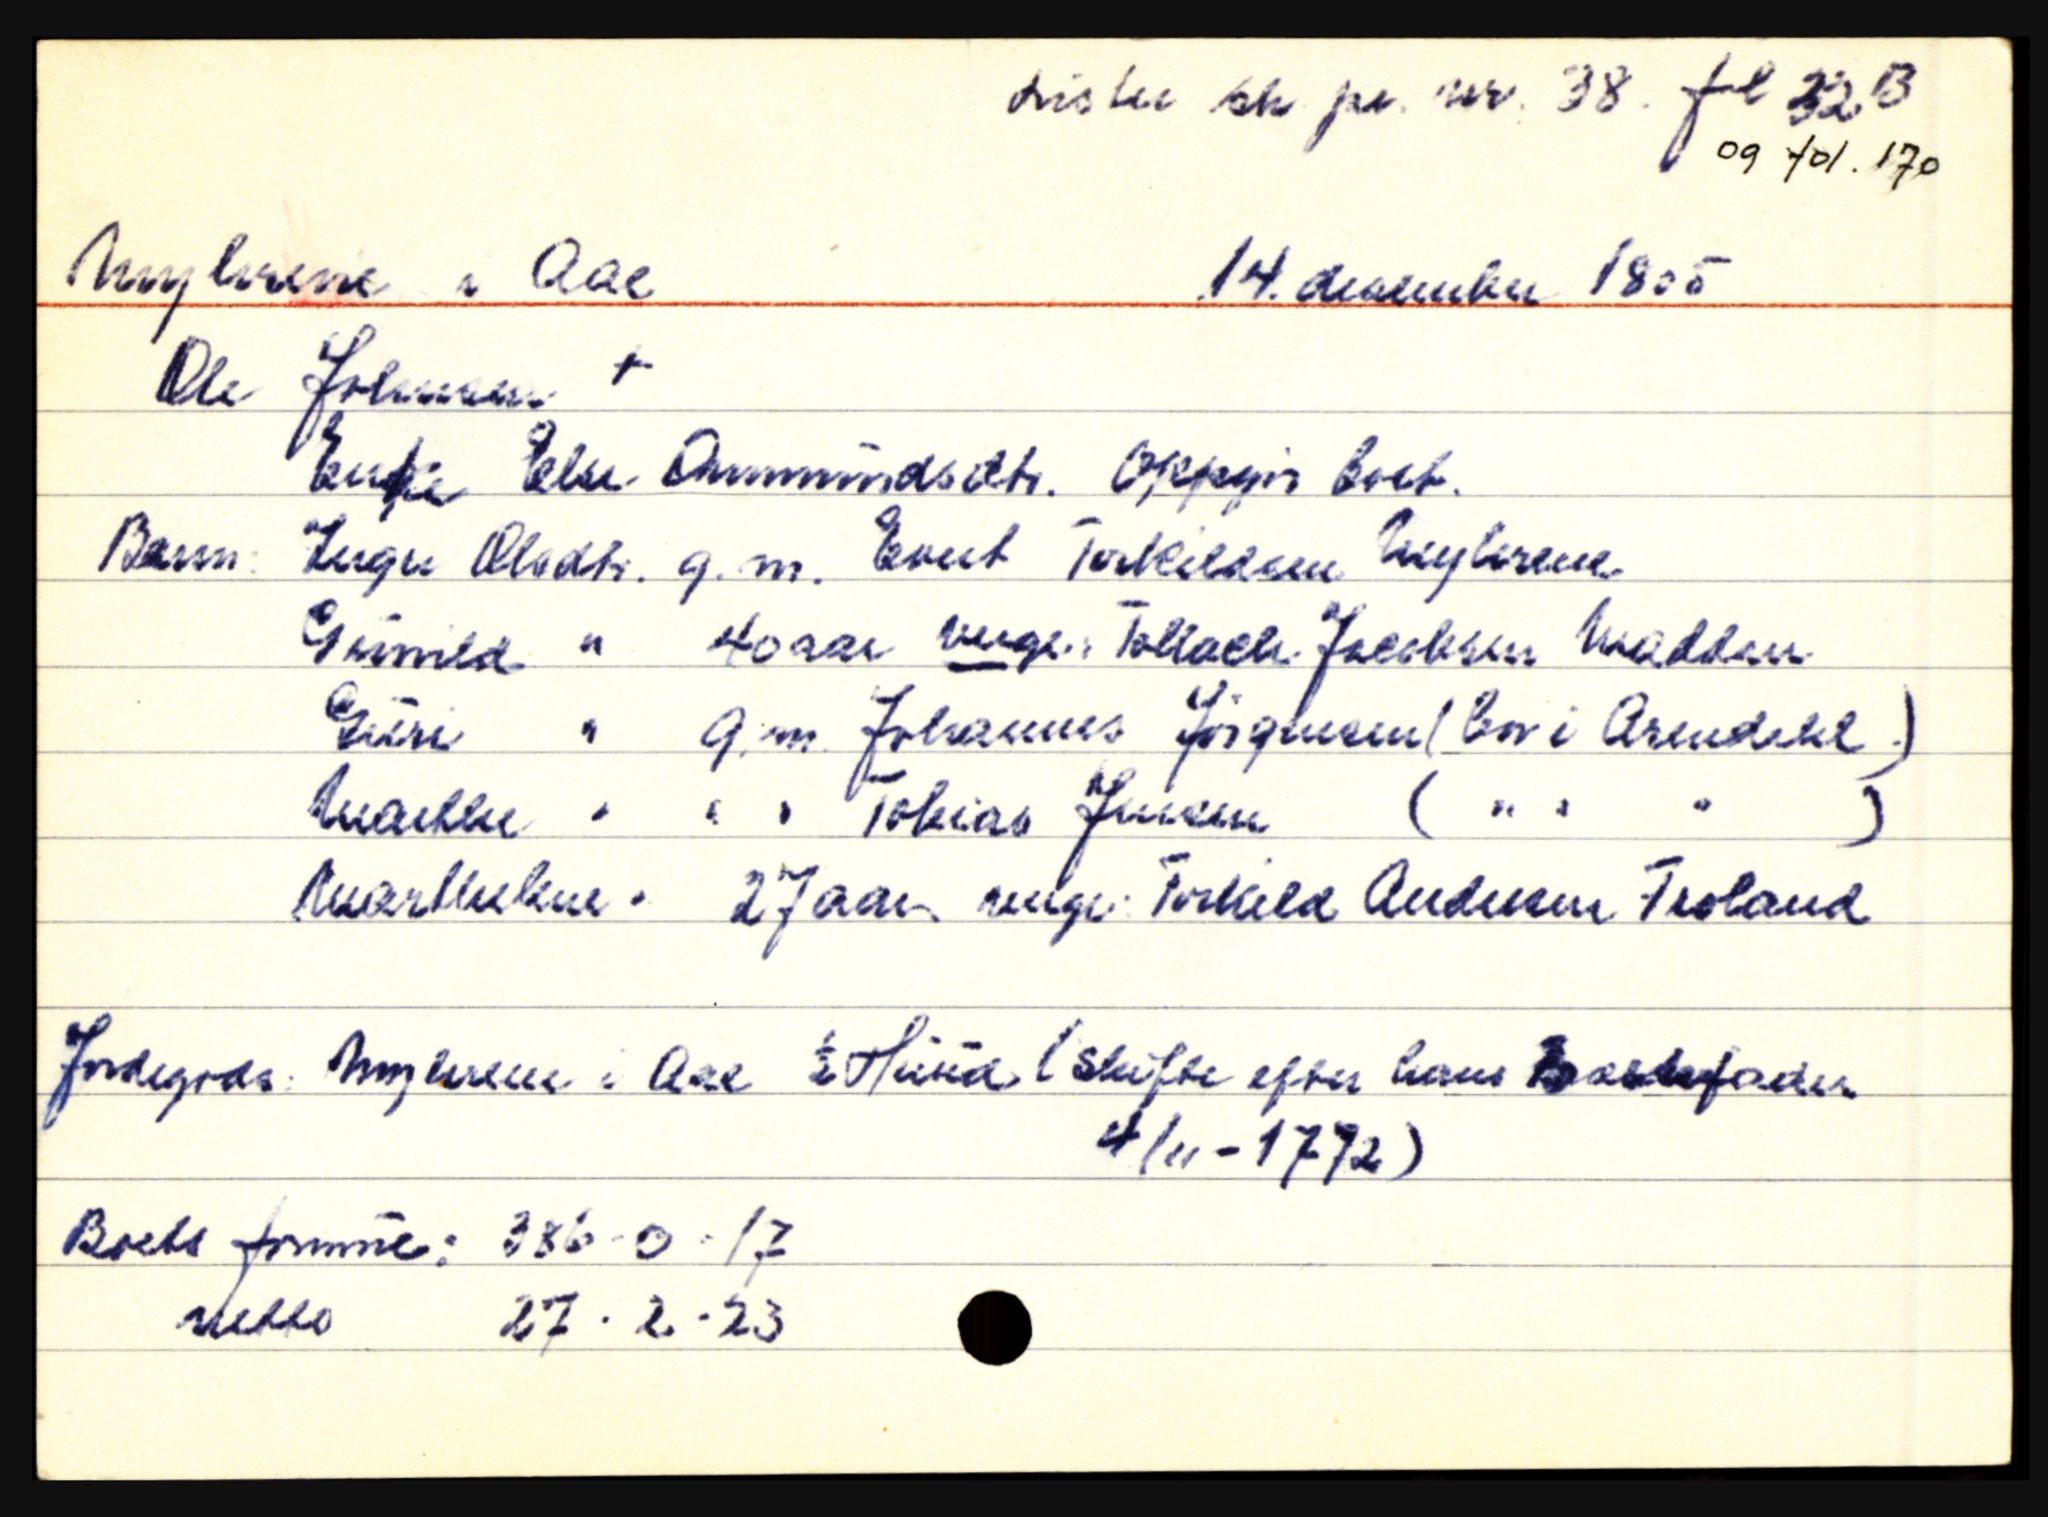 Lister sk. pr. nr. 38. fol 32 B
09 fol. 170
Myhrene i Aae 14. desember 1805
Ole Johnsen +
Enke Else Ammundsdtr. Oppgir boet.
Barn: Inger Olsdtr. g.m. Evert Torkildsen Myhrene
Günild " 40 aar verge: Tollach Jacobsen
Güri " g.m. Johannes Jörgensen (bor i Arendahl)
Marthe " " " Tobias Jensen ( " " " )
Marthelene " 27 aar verge: Torkild Andersen Troland
Jordegods: Myhrene i Aae ½ Hüud (Skifte efter hans Bestefader
4/11 - 1772)
Boets formüe: 386 - 0 - 17
netto 27 - 2 - 23